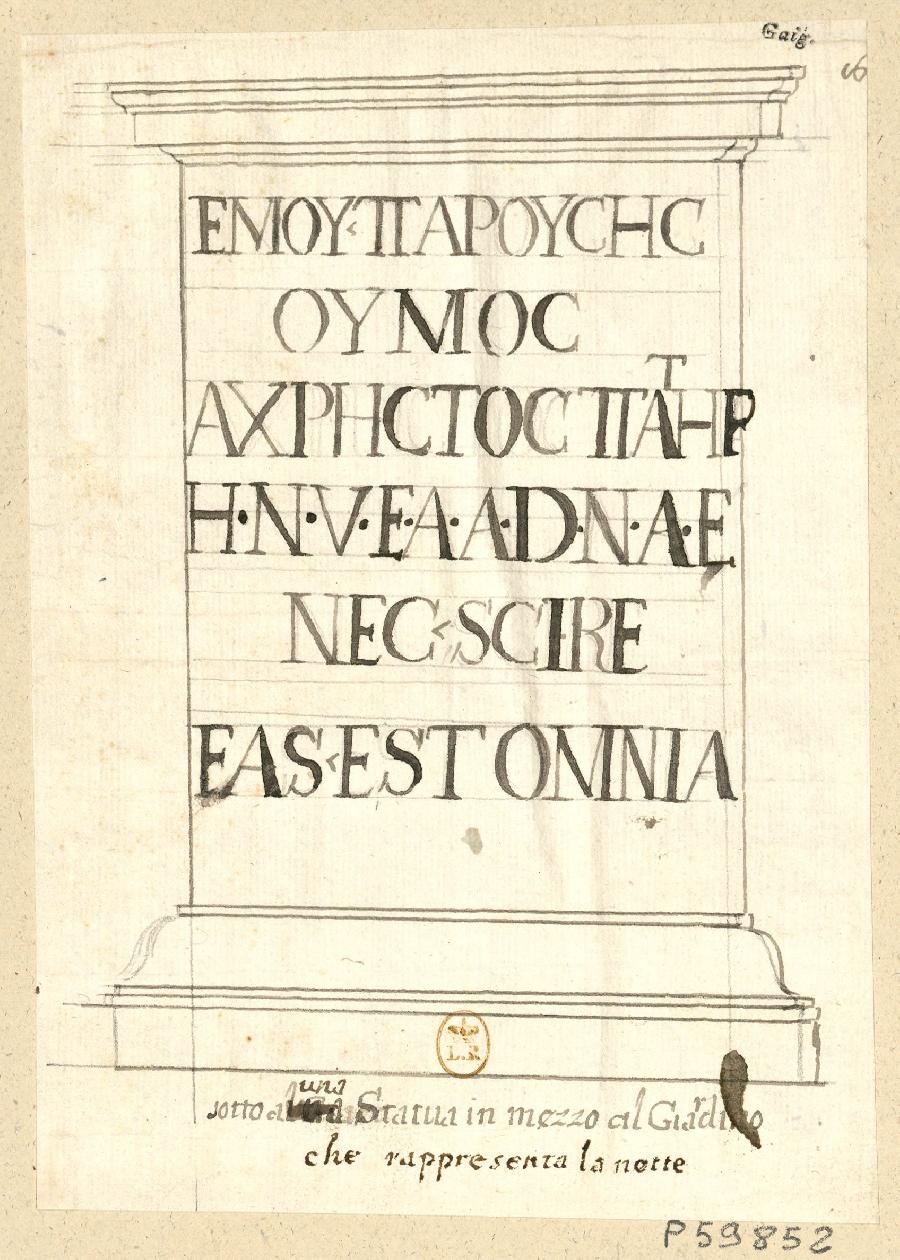 Gaig.
16
ΕΜΟΥ‹ΠΑΡΟΥCΗC
ΟΥΜΟC
ΑΧΡΗCΤΟC ΠΑΤΗΡ
H·N·V·E·A·A·D·N·A·E
NEC‹SCIRE
EAS‹EST OMNIA
L.R
sotto al una Statua in mezzo al Giardino
che rappresenta la notte
P59852